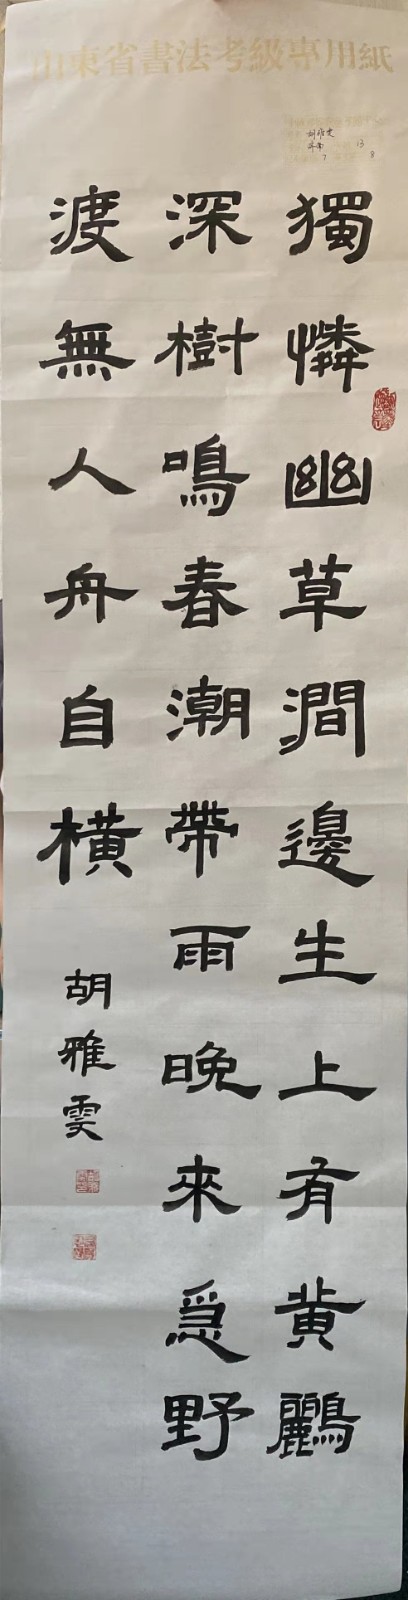 山東省書法考級專用紙
胡雅雯
13
7
9
獨憐幽草澗邊生上有黄鸝
深樹鳴春潮帶雨晚來急野
渡無人舟自橫
胡雅雯